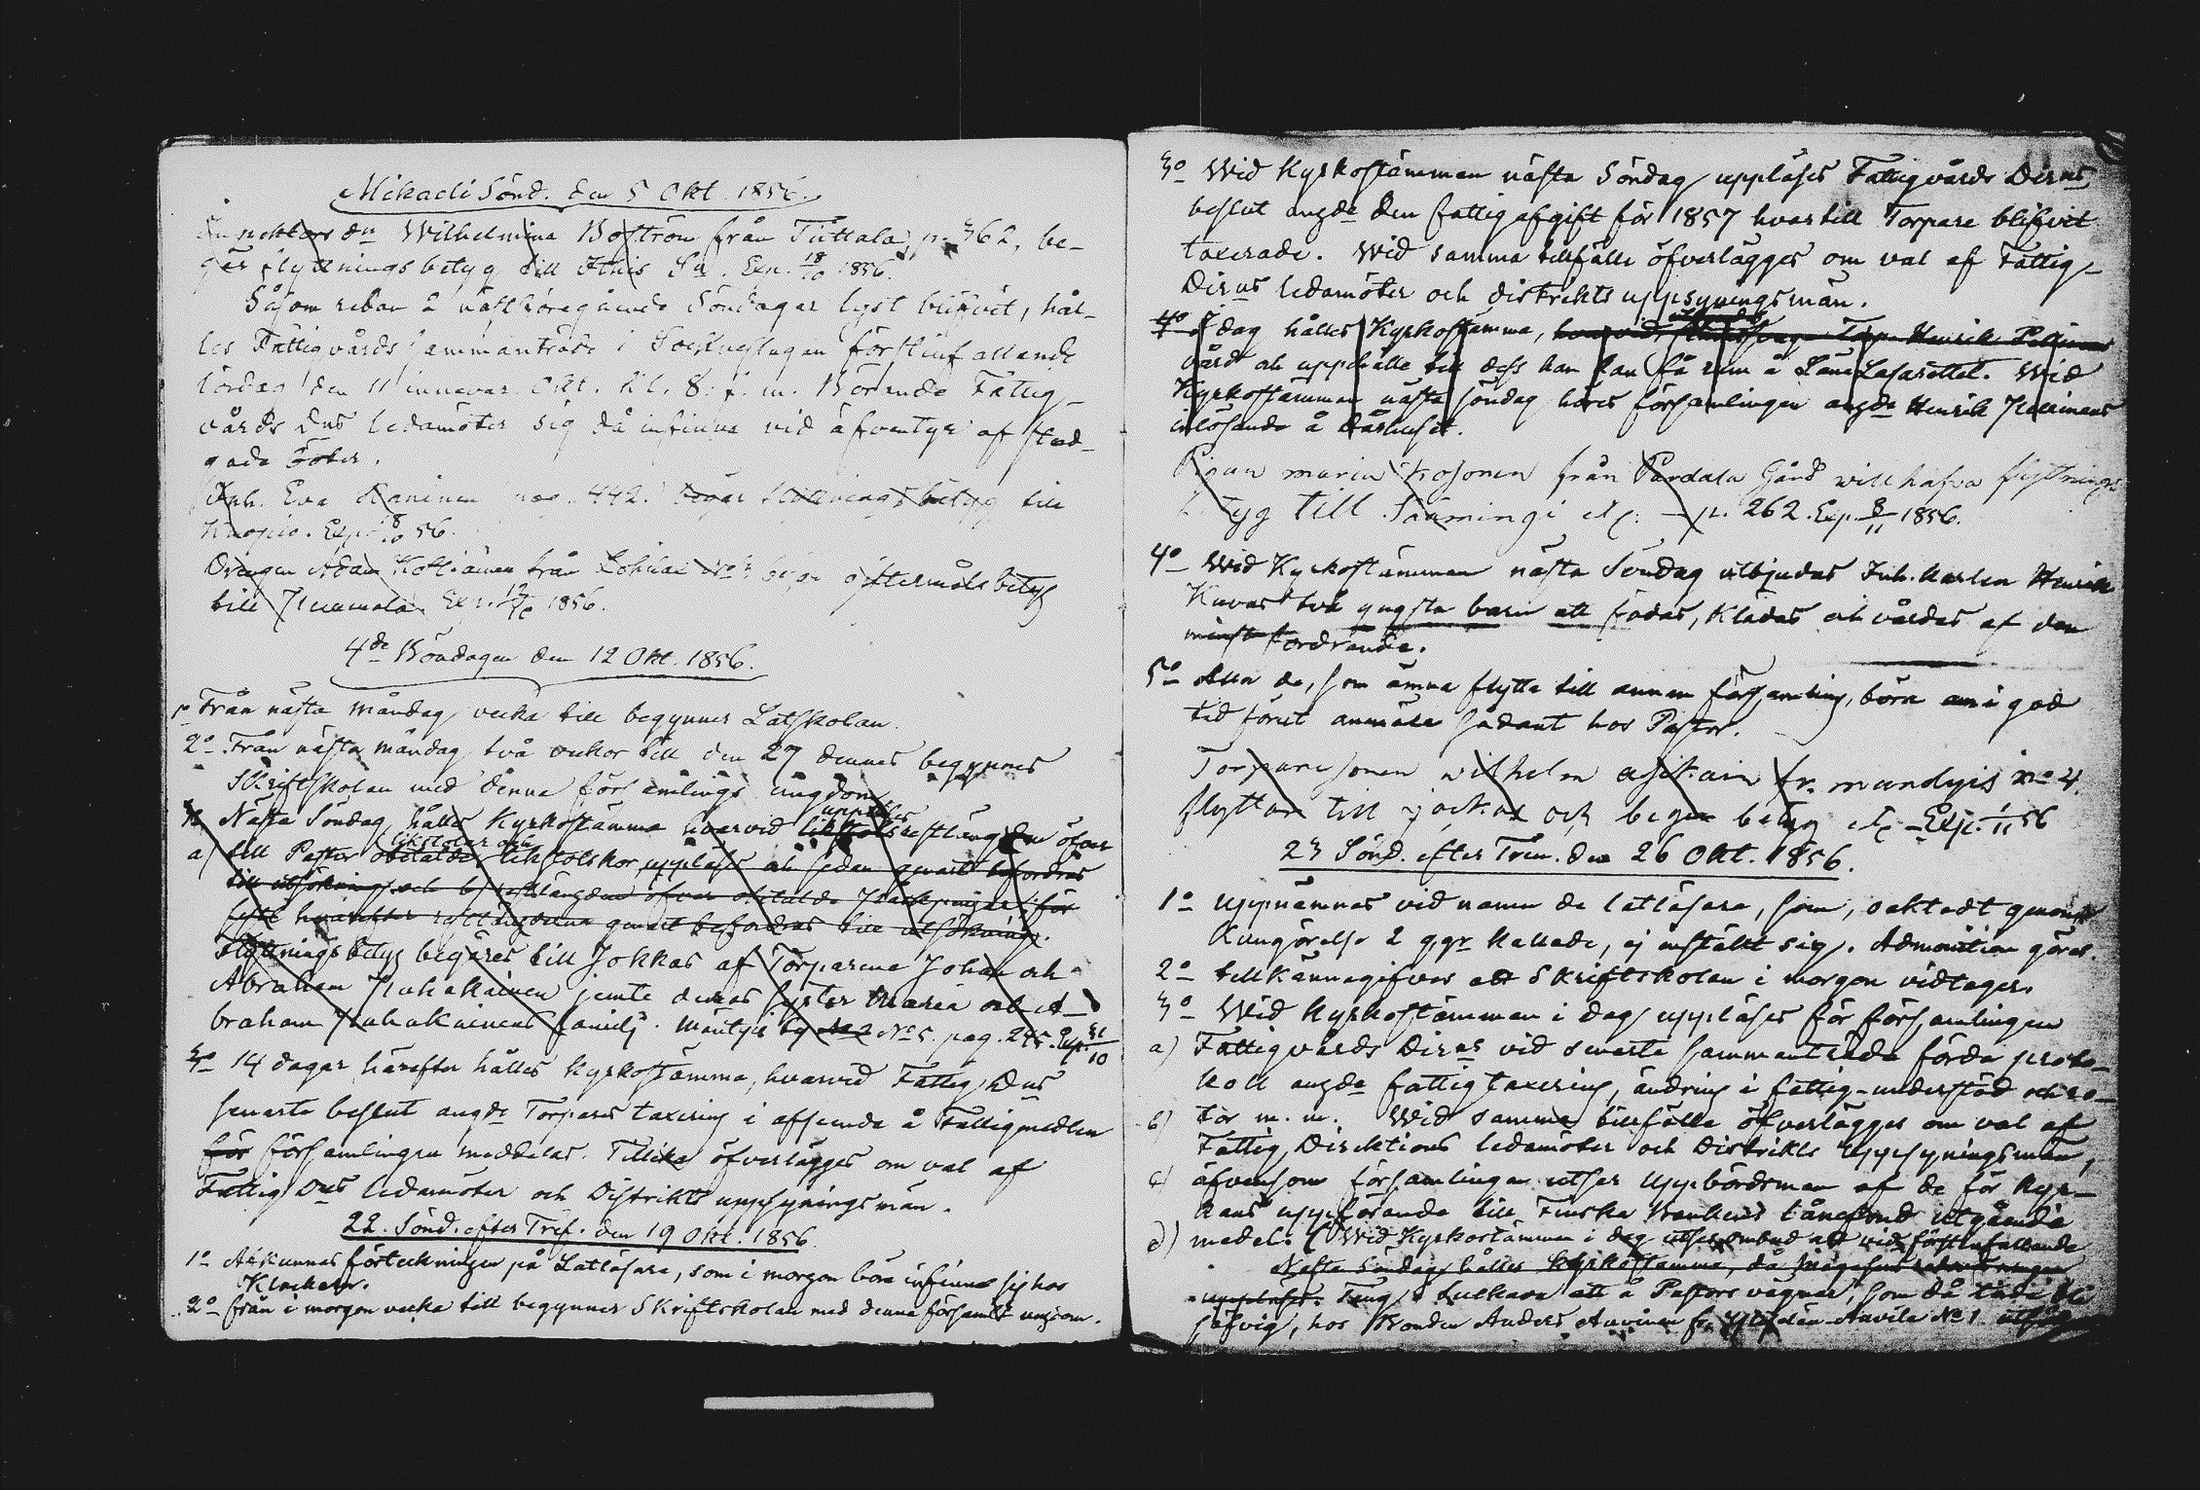 Mikaeli Sönd. den 5 Okt. 1856.
Wilhelmina Boström från Tuttala, p. 362, be-
gär flyttningsbetyg till Sn. Exp. 18/10 1856.
Såsom redan 2 nästföregående Söndagar lyst blifvit, hål-
les Fattigvårds sammanträde i Sockenstugan förstinfallande
lördag den 11 innevar. Okt. Kl. 8. f. m. Börande Fattig-
vårds Dns ledamöter sig då infinna vid äfventyr af stad-
gade böter.
Inh. Eva pag. 442. begär flyttningsbetyg till
Kuopio. Exp. 8/10 56.
Drängen Adam från No betyg
till Exp. 1856.
4de Böndagen den 12 Okt. 1856.
1o Från nästa måndag vecka till begynner Lätskolan.
2o Från nästa måndag två veckor till den 27 dennes begynnes
Skriftskolan med denna församlings ungdom.
Nästa Söndag hålles Kyrkostämma hvarvid restlängden öfver
upplöses
likstolar och
a) till Pastor obetalde likstolskor uppläses och sedan genast befordras
till utsökning och b) restlängden öfver obetalde för
hvarefter genast befordras till utsökning.
Flyttningsbetyg begäres till Jokkas af Torparene Johan och
Abraham Juhakainen jemte deras syster Maria och A-
braham Juhakainens familj. Mäntyis by No 5. pag. 245. Exp. 31/10
3o 14 dagar härefter hålles Kyrkostämma, hvarvid Fattig Dns
senaste beslut angde Torpares taxering i afseende å Fattigmedlen
för församlingen meddelas. Tillika öfverlägges om val af
Fattig Dns ledamöter och Distrikts uppsyningsmän.
22. Sönd. efter Tref. den 19 Okt. 1856.
1o Afkunnas förteckningen på Latläsare, som i morgon böra infinna sig hos
Klockaren.
2o från i morgon vecka till begynner Skriftskolan med denna församls ungdom.
3o Wid Kyrkostämman nästa Söndag uppläses Fattigvårds Dirns
beslut angde den fattigafgift för 1857 hvartill Torpare blifvit
taxerade. Wid samma tillfälle öfverlägges om val af Fattig-
Dirns ledamöter och distrikts uppsyningsmän.
4o I dag hålles Kyrkostämma, hvarvid Torp. Henrik
vård och uppehälle till dess han kan få rum å Läns Lasarettet. Wid
Kyrkostämman nästa söndag höres församlingen angde Henrik
inlösande å dårhuset.
Pigan maria Kosonen från Pardala Gård vill hafva flyttnings
betyg till Sääminge etc. – p. 262. Exp. 8/11 1856.
4o Wid Kyrkostämman nästa Söndag utbjudas Inh. karlen Henrik
två yngsta barn att födas, klädas och vårdas af den
minst fordrande.
5o Alla de, som ämna flytta till annan församling, böra i god
tid förut anmäla sådant hos Pastor.
Torparesonen wilhelm fr. mandyis no 4.
flyttar till jockas och begär betyg etc – Exp. 1/11 56
23 Sönd. efter Tren. den 26 Okt. 1856.
1o uppnämnas vid namn de latläsare, som, oaktadt genom
Kungörelse 2 ggr kallade, ej instält sig. Admonition göres.
2o tillkännagifves att Skriftskolan i morgon vidtager.
3o Wid Kyrkostämman i dag uppläses för församlingen
a) Fattigvårds Dirns vid senaste sammanträde förda proto-
koll angde fattigtaxering, ändring i fattig-understöd och ro-
b) tor m. m. Wid samma tillfälle öfverlägges om val af
Fattig Direktions ledamöter och Distrikts Uppsyningsmän,
c) äfvensom församlingen utser Uppbördsman af de för
uppförande till Finska Bankens lånefond utgående
d) medel. Wid Kyrkostämman i dag utses ombud att vid förstinfallande
Nästa Söndag hålles Kyrkostämma, då
uppläses. Ting i att å Pastors vägnar, som då
jäfvig, hos Bonden Anders Auvinen fr. No 1